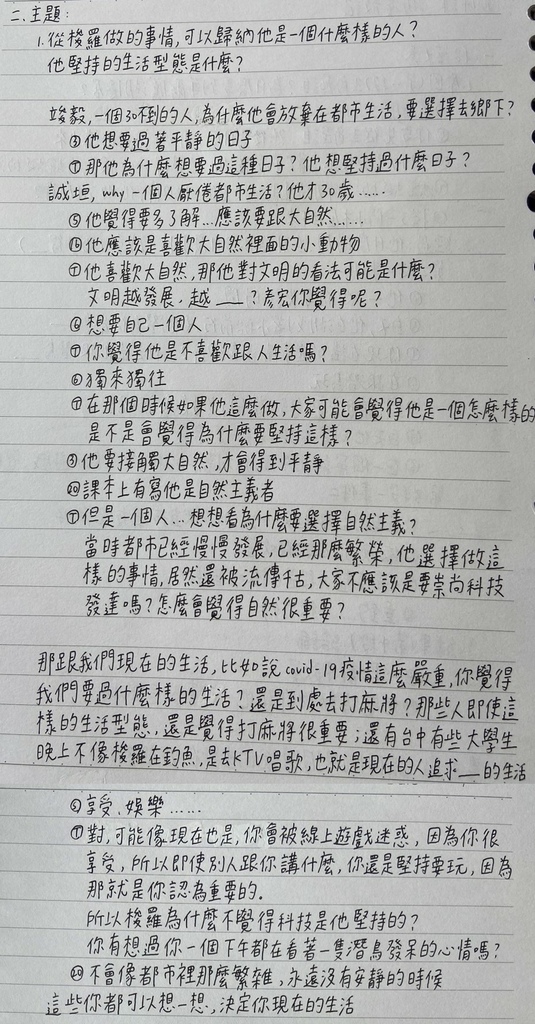 二、主題:
1. 從梭羅做的事情,可以歸納他是一個什麼樣的人?
他堅持的生活型態是什麼?
竣毅,一個30不到的人,為什麼他會放棄在都市生活,要選擇去鄉下?
他想要過著平靜的日子
Ⓣ那他為什麼想要過這種日子?他想堅持過什麼日子?
誠垣, why 一個人厭倦都市生活?他才30歲……
⑤他覺得要多了解…應該要跟大自然……
⑯他應該是喜歡大自然裡面的小動物
Ⓣ他喜歡大自然,那他對文明的看法可能是什麼?
文明越發展,越__?彥宏你覺得呢?
⑥想要自己一個人
Ⓣ你覺得他是不喜歡跟人生活嗎?
⑥獨來獨往
Ⓣ在那個時候如果他這麼做,大家可能會覺得他是一個怎麼樣的
是不是會覺得為什麼要堅持這樣?
他要接觸大自然,才會得到平靜
⑳課本上有寫他是自然主義者
Ⓣ但是一個人…想想看為什麼要選擇自然主義?
當時都市已經慢慢發展,已經那麼繁榮,他選擇做這
樣的事情,居然還被流傳千古,大家不應該是要崇尚科技
發達嗎?怎麼會覺得自然很重要?
那跟我們現在的生活,比如說covid-19疫情這麼嚴重,你覺得
我們要過什麼樣的生活?還是到處去打麻將?那些人即使這
樣的生活型態,還是覺得打麻將很重要;還有台中有些大學生
晚上不像梭羅在釣魚,是去KTV唱歌,也就是現在的人追求__的生活
⑥享受、娛樂……
Ⓣ對,可能像現在也是,你會被線上遊戲迷惑,因為你很
享受,所以即使別人跟你講什麼,你還是堅持要玩,因為
那就是你認為重要的.
所以梭羅為什麼不覺得科技是他堅持的?
你有想過你一個下午都在看著一隻潛鳥發呆的心情嗎?
⑳不會像都市裡那麼繁雜,永遠沒有安靜的時候
這些你都可以想一想,決定你現在的生活